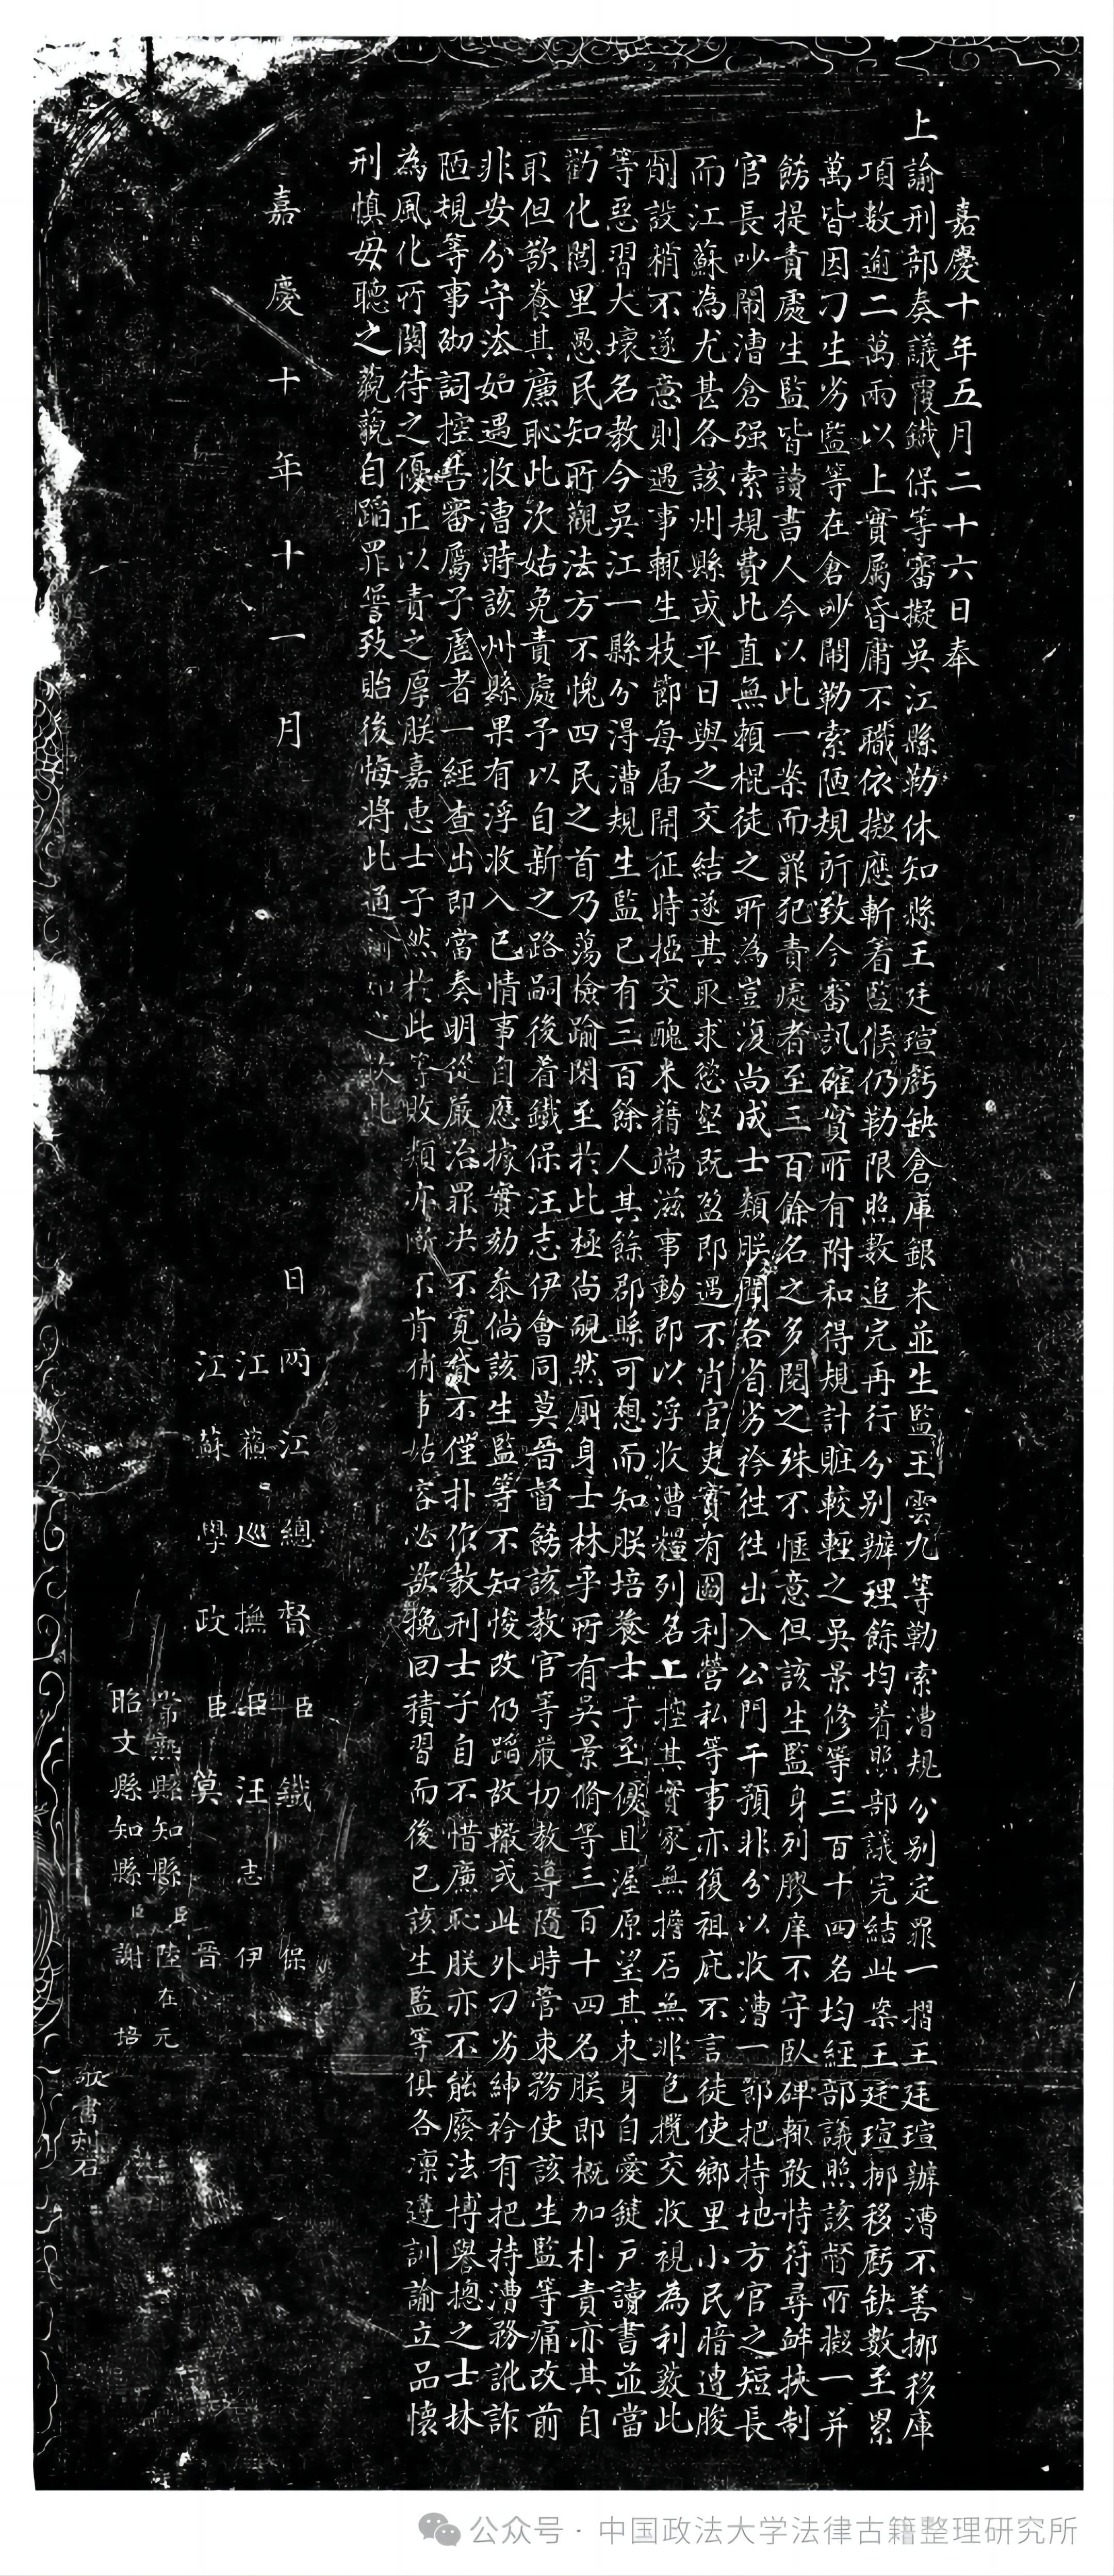 嘉慶十年五月二十六日奉
上諭刑部奏議覆鐵保等審擬吳江縣勒休知縣王廷瑄虧缺倉庫銀米並生監王雲九等勒索漕規分别定罪一摺王廷瑄辦漕不善挪移庫
項數逾二萬兩以上實屬昏庸不職依擬應斬着監候仍勒限照数追完再行分别辦理餘均着照部議完結此案王廷瑄挪移虧缺數至累
萬皆因刁生劣監等在倉吵鬧勒索陋規所致今審訊確實所有附和得規計賍較輕之吳景修等三百十四名均經部議照該督所擬一并
飭提責處生監皆讀書人今以此一案而罪犯責處者至三百餘名之多閱之殊不愜意但該生監身列膠庠不守臥碑輒敢恃符尋衅挾制
官長吵鬧漕倉强索規費此直無賴棍徒之所為豈復尚成士類朕聞各省劣衿往往出入公門干預非分以收漕一節把持地方官之短長
而江蘇為尤甚各該州縣或平日與之交結遂其取求慾壑既盈即遇不肖官吏實有圖利營私等事亦復袒庇不言徒使鄉里小民暗遭朘
削設稍不遂意則遇事輒生枝節每届開征時掗交醜米藉端滋事動即以浮收漕糧列名上控其實家無擔石無非包攬交收視為利藪此
等惡習大壞名教今吳江一縣分得漕規生監已有三百餘人其餘郡縣可想而知朕培養士子至優且渥原望其束身自愛鍵戸讀書並當
勸化閭里愚民知所觀法方不愧四民之首乃蕩檢踰閑至於此極尚靦然厠身士林乎所有吳景脩等三百十四名朕即概加朴責亦其自
取但欲養其廉恥此次姑免責處予以自新之路嗣後着鐵保汪志伊會同莫晉督飭該教官等嚴切教導隨時管束務使該生監等痛改前
非安分守法如遇收漕時該州縣果有浮收入己情事自應據實劾叅倘該生監等不知悛改仍蹈故轍或此外刁劣紳衿有把持漕務訛詐
陋規等事砌詞控告審屬子虛者一經查出即當奏明從嚴治罪決不寬貸不僅扑作教刑士子自不惜廉恥朕亦不能廢法博譽揔之士林
為風化所関待之優正以責之厚朕嘉惠士子然於此等敗類亦斷不肯稍事姑容必欲挽回積習而後已該生監等俱各凛遵訓諭立品懐
刑慎毋聽之藐藐自蹈罪愆致貽後悔將此通諭知之欽此
嘉慶十年十一月　日
兩江總督臣鐵保
江蘇巡撫臣汪志伊
江蘇學政臣莫晉
常熟縣知縣臣陸在元
昭文縣知縣臣謝培
敬書刻石
公众号 · 中国政法大学法律古籍整理研究所